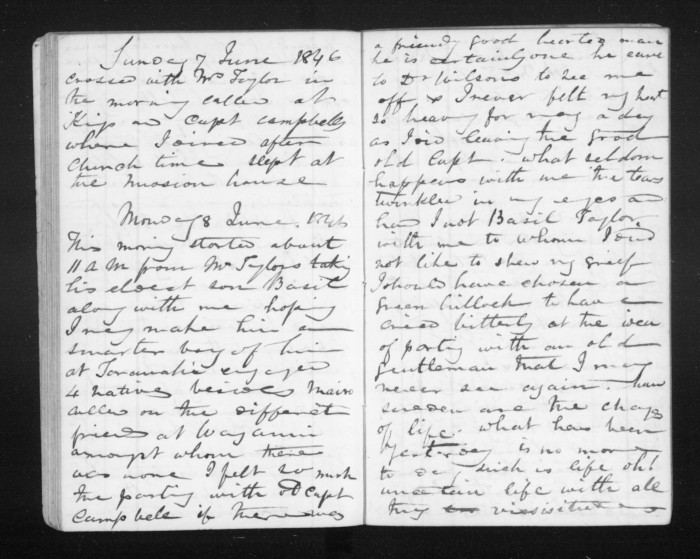 Sunday 7 June 1846
crossed with Mr Taylor in
the morning called at
Kings and Capt Campbells
where I dined after
church time slept at
the mission house
Monday 8 June, 1846
This morning started about
11 A M from Mr Taylors taking
his eldest son Basil
along with me hoping
I may make him a
smarter boy of him
at Taranaki engaged
4 natives besides
called on the different
friends at
amongst whom there
was none I felt so much
the parting with as Capt
Campbell if there was
a friendly good hearted man
he is certainly one he came
to Dr Wilsons to see me
off & I never felt my heart
so heavy for many a day
as I did leaving the good
old Capt. what seldom
happens with me the tears
twinkled in my eyes and
had I not Basil Taylor
with me to whom I did
not like to shew my grief
I should have chosen a
green hillock to have a
cried bitterly at the idea
of parting with an old
gentleman that I may
never see again. how
sudden are the changes
of life. what has been
yesterday is no more
to day, such is life oh!
uncertain life with all
thy vissisitudes